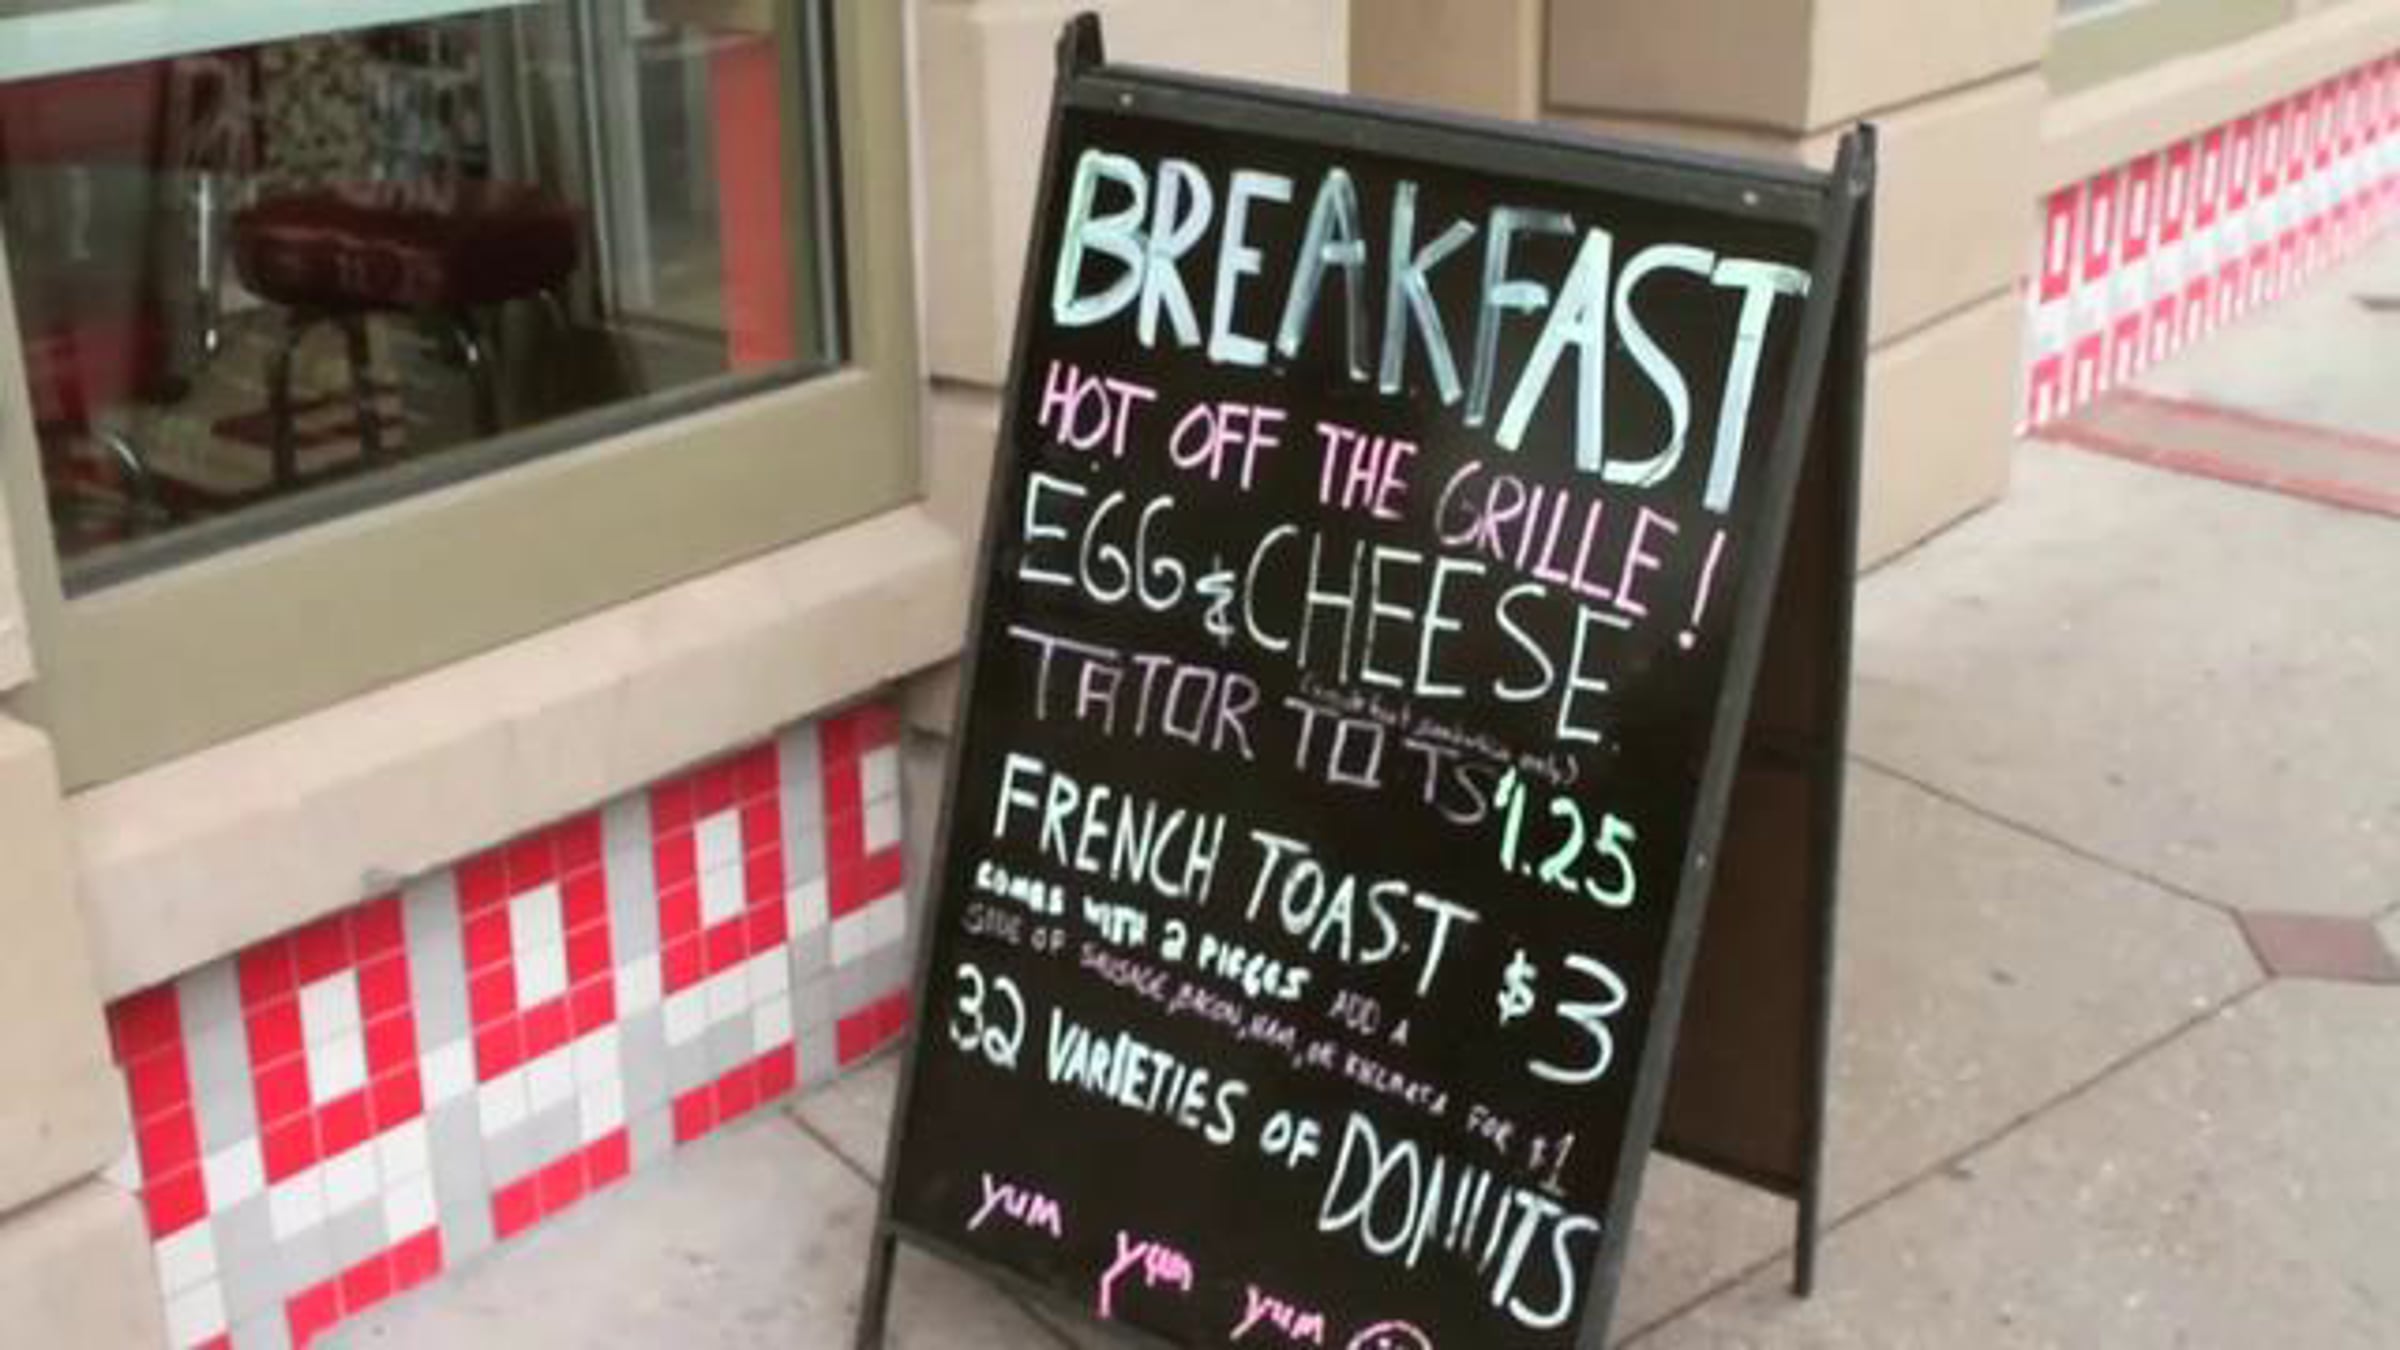 BREAKFAST
HOT OFF THE GRILLE!
EGG & CHEESE
(breakfast sandwich only)
TATOR TOTS $1.25
FRENCH TOAST $3
COMES WITH 2 PIECES ADD A
SIDE OF SAUSAGE, BACON, HAM, OR KIELBASA FOR $1
32 VARIETIES OF DONUTS
yum yum yum